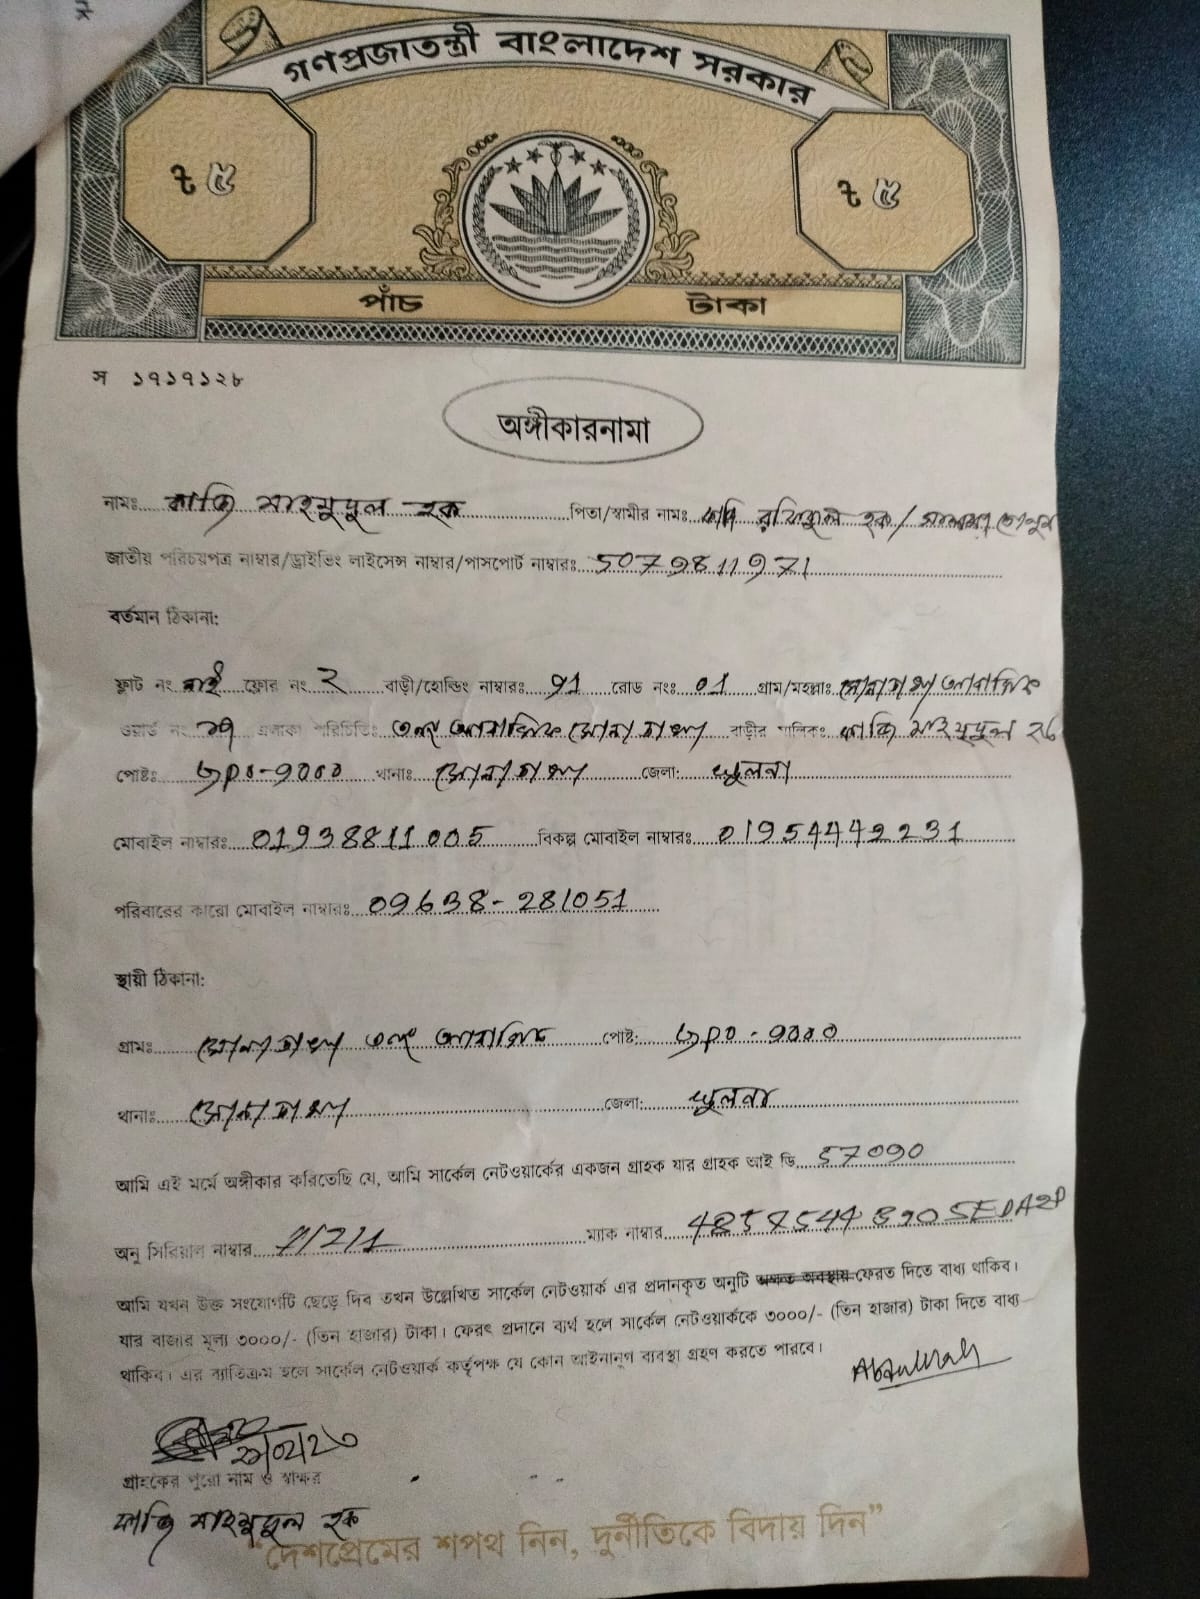 গণপ্রজাতন্ত্রী বাংলাদেশ সরকার
৳ ৫ ৳ ৫
পাঁচ টাকা
স ১৭১৭১২৮
অঙ্গীকারনামা
নামঃ কাজি মাহমুদুল হক পিতা/স্বামীর নামঃ কাজি রফিকুল হক/
জাতীয় পরিচয়পত্র নাম্বার/ড্রাইভিং লাইসেন্স নাম্বার/পাসপোর্ট নাম্বারঃ 5079811971
বর্তমান ঠিকানা:
ফ্লাট নং নাই ফ্লোর নং ২ বাড়ী/হোল্ডিং নাম্বারঃ 91 রোড নংঃ 01 গ্রাম/মহল্লাঃ সোনাডাঙ্গা আবাসিক
ওয়ার্ড নং ১৭ এলাকা পরিচিতিঃ আবাসিক সোনাডাঙ্গা বাড়ীর মালিকঃ কাজি মাহমুদুল হক
পোষ্টঃ Gpo-9000 থানাঃ সোনাডাঙ্গা জেলা: খুলনা
মোবাইল নাম্বারঃ 01938811005 বিকল্প মোবাইল নাম্বারঃ 01954442231
পরিবারের কারো মোবাইল নাম্বারঃ 09638-281051
স্থায়ী ঠিকানা:
গ্রামঃ সোনাডাঙ্গা আবাসিক পোষ্ট: Gpo-9000
থানাঃ সোনাডাঙ্গা জেলা: খুলনা
আমি এই মর্মে অঙ্গীকার করিতেছি যে, আমি সার্কেল নেটওয়ার্কের একজন গ্রাহক যার গ্রাহক আই ডি 57090
অনু সিরিয়াল নাম্বার 1/2/1 ম্যাক নাম্বার
আমি যখন উক্ত সংযোগটি ছেড়ে দিব তখন উল্লেখিত সার্কেল নেটওয়ার্ক এর প্রদানকৃত অনুটি অক্ষত অবস্থায় ফেরত দিতে বাধ্য থাকিব।
যার বাজার মূল্য ৩০০০/- (তিন হাজার) টাকা। ফেরৎ প্রদানে ব্যর্থ হলে সার্কেল নেটওয়ার্ককে ৩০০০/- (তিন হাজার) টাকা দিতে বাধ্য
থাকিব। এর ব্যাতিক্রম হলে সার্কেল নেটওয়ার্ক কর্তৃপক্ষ যে কোন আইনানুগ ব্যবস্থা গ্রহণ করতে পারবে।
Abdullah
গ্রাহকের পুরো নাম ও স্বাক্ষর
কাজি মাহমুদুল হক
"দেশপ্রেমের শপথ নিন, দুর্নীতিকে বিদায় দিন"